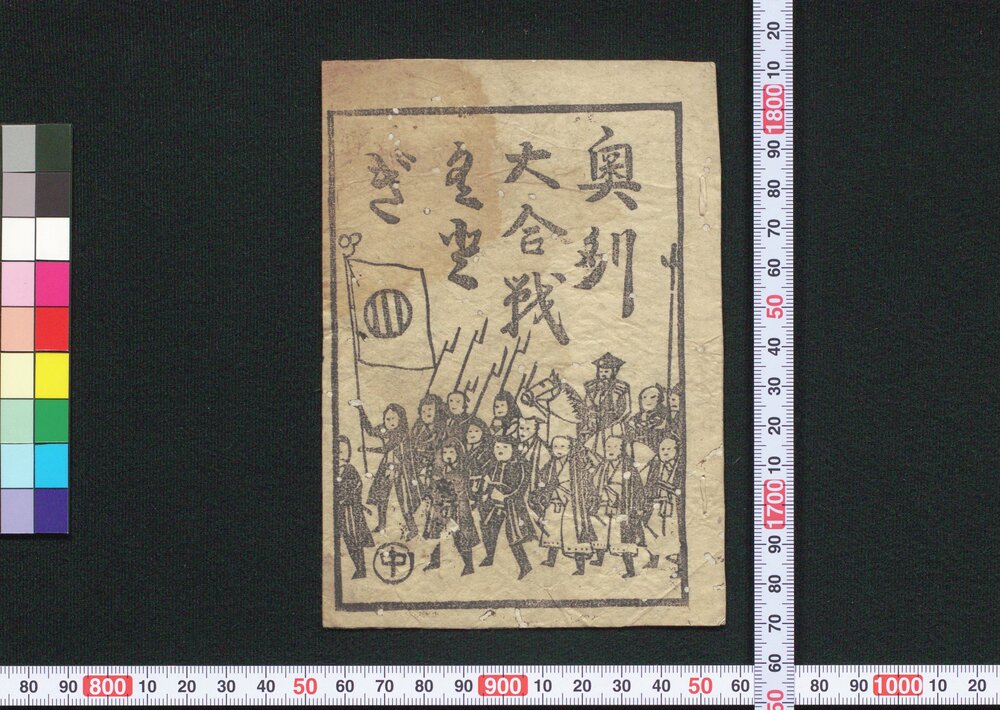 奥刕
大合戦
ぎ
中
20
10
1800
90
80
70
60
50
40
30
20
10
1700
90
80
70
60
50
80 90 800 10 20 30 40 50 60 70 80 90 900 10 20 30 40 50 60 80 90 1000 10 20